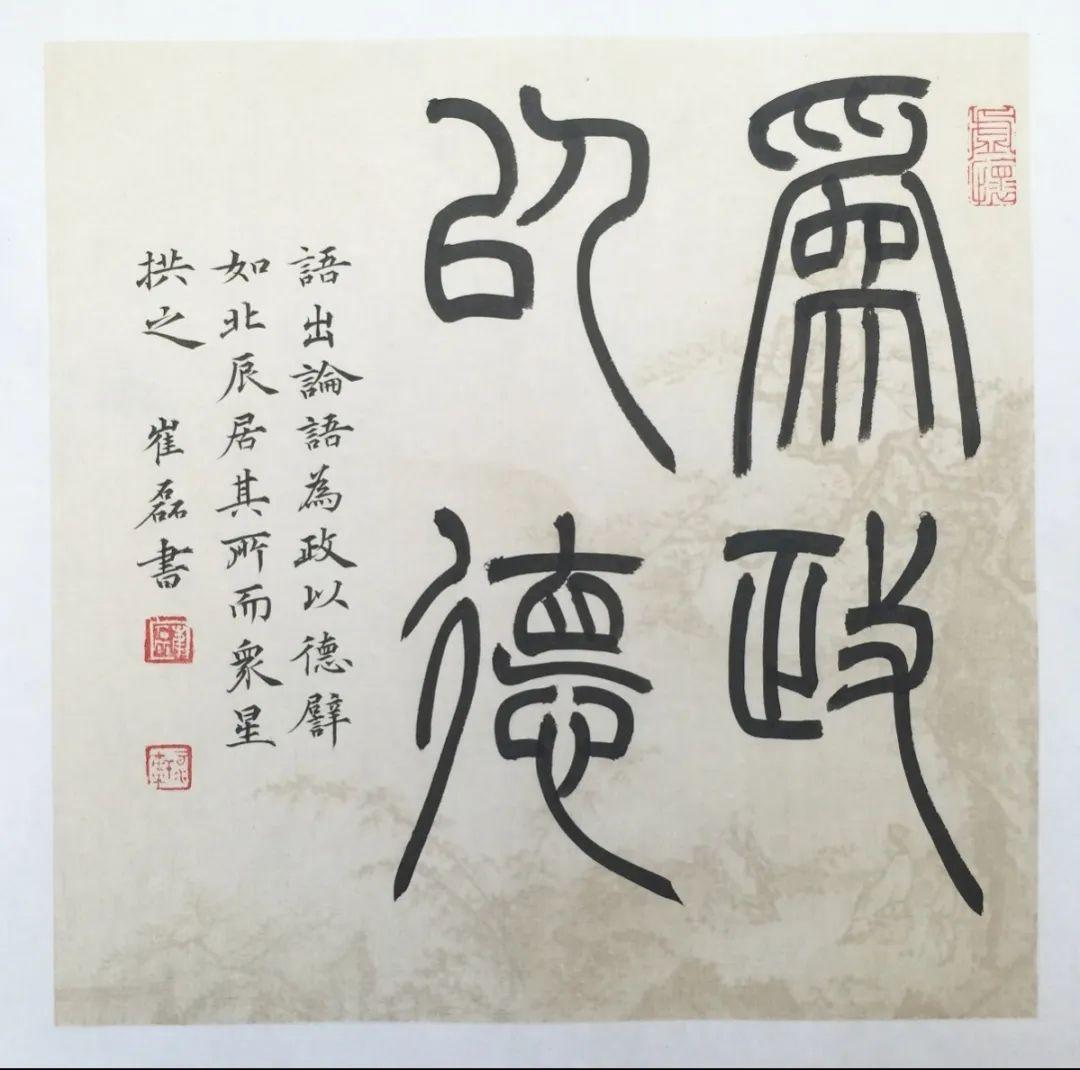 爲政
以德
語出論語為政以德譬
如北辰居其所而衆星
拱之 崔磊書